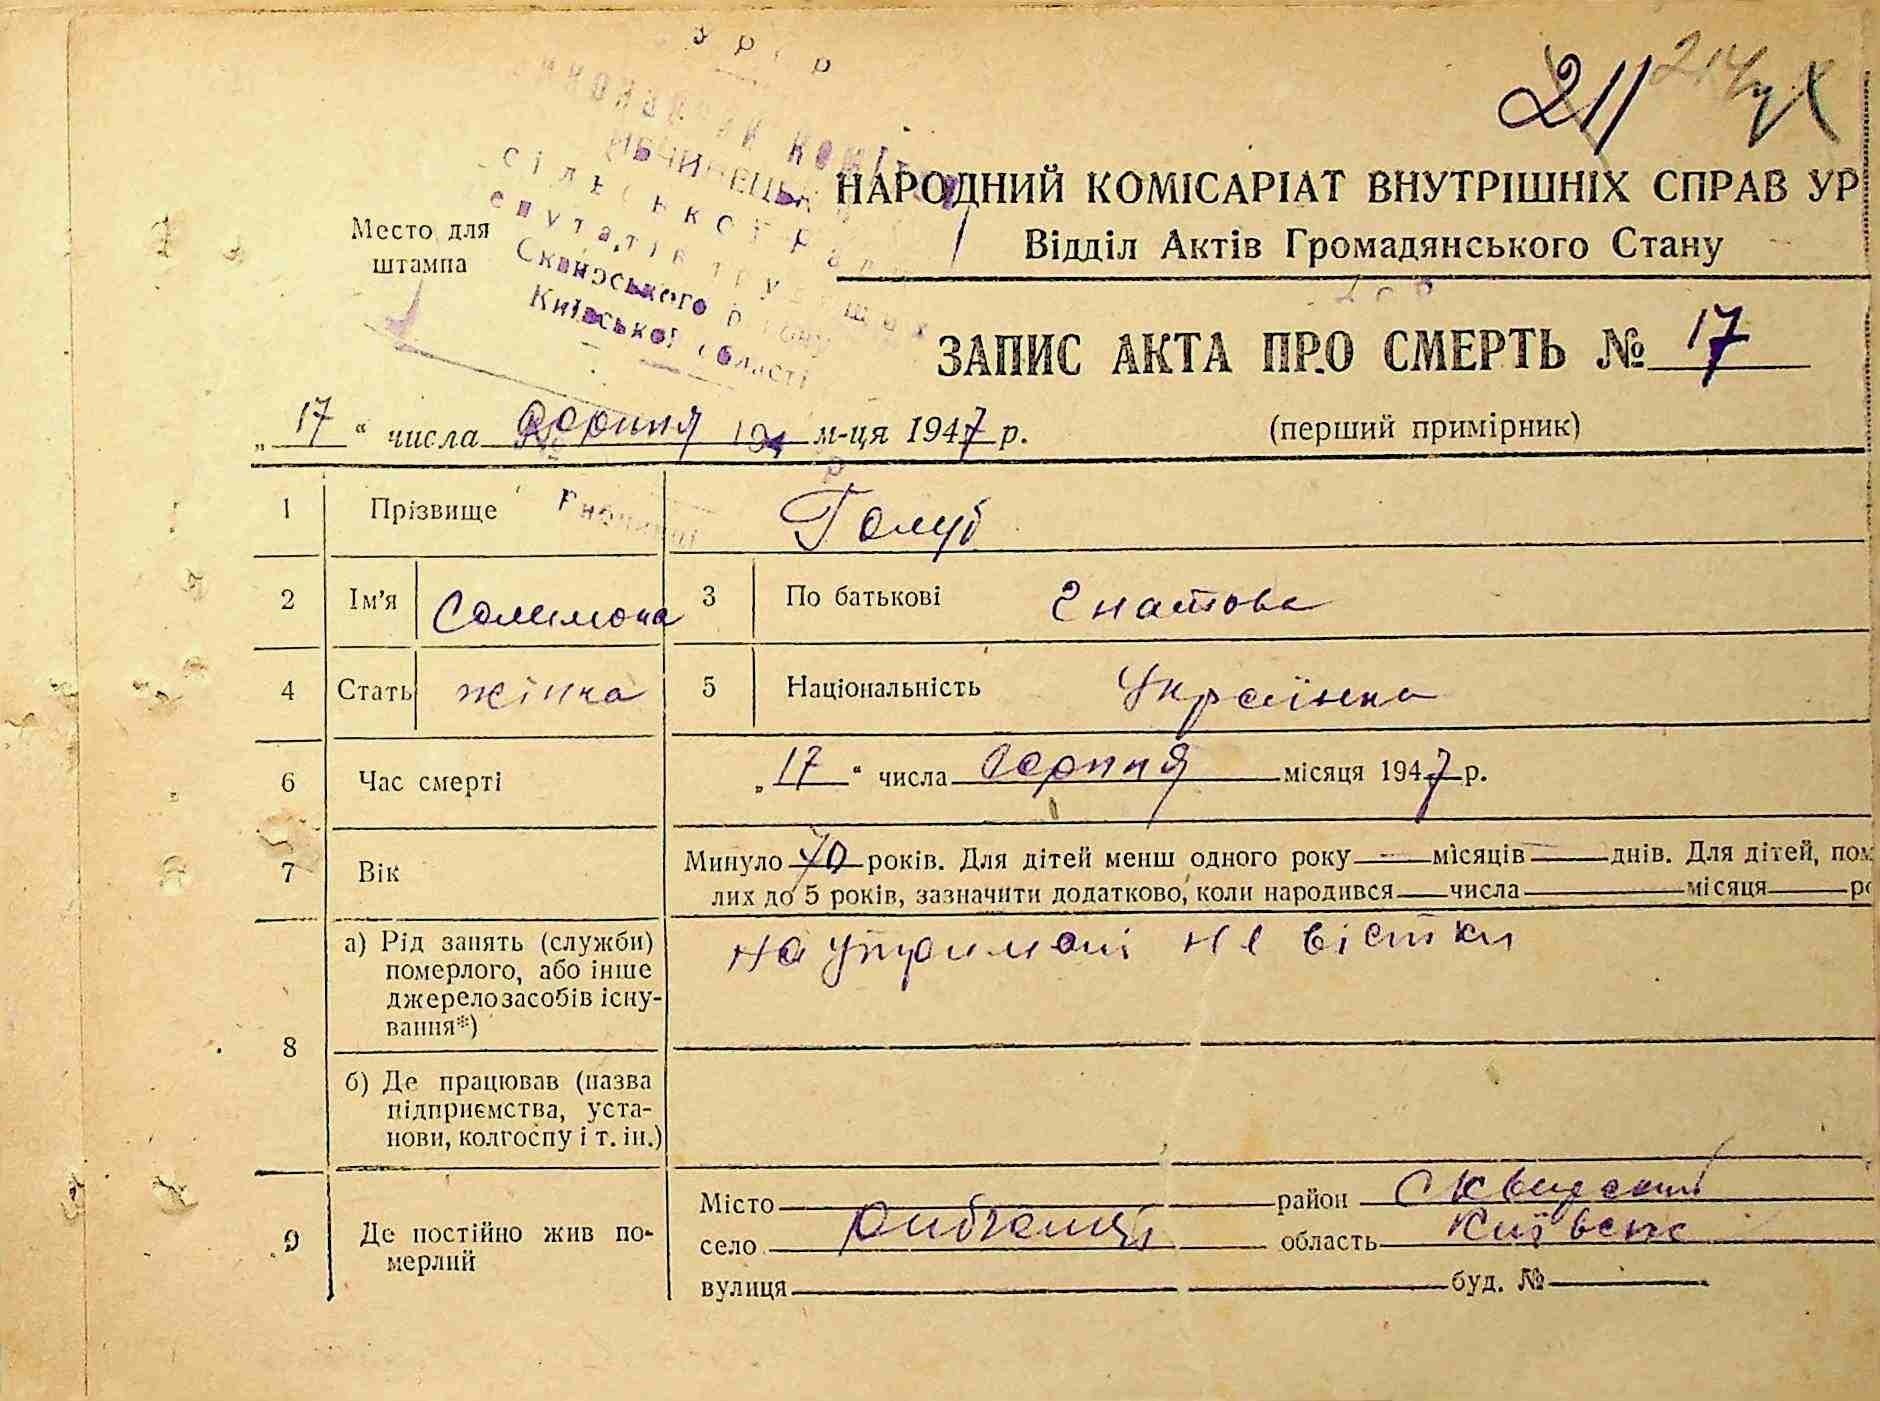 УРСР
ВИКОНАВЧИЙ КОМІТЕТ
сільської Ради
депутатів трудящих
Сквирського району
Київської області
211 214
НАРОДНИЙ КОМІСАРІАТ ВНУТРІШНІХ СПРАВ УР
Відділ Актів Громадянського Стану
Место для
штампа
ЗАПИС АКТА ПРО СМЕРТЬ № 17
„17“ числа серпня м-ця 1947 р. (перший примірник)
1 Прізвище Голуб
2 Ім'я Солимона 3 По батькові Гнатова
4 Стать жінка 5 Національність Українка
6 Час смерті „17“ числа серпня місяця 1947 р.
7 Вік Минуло 70 років. Для дітей менш одного року — місяців — днів. Для дітей, пом
лих до 5 років, зазначити додатково, коли народився — числа — місяця — ро
8 а) Рід занять (служби)
померлого, або інше
джерело засобів існу-
вання*)
на утримані не вістки
б) Де працював (назва
підприємства, уста-
нови, колгоспу і т. ін.)
9 Де постійно жив по-
мерлий
Місто район Сквирский
село Рибчинці область Київська
вулиця буд. №